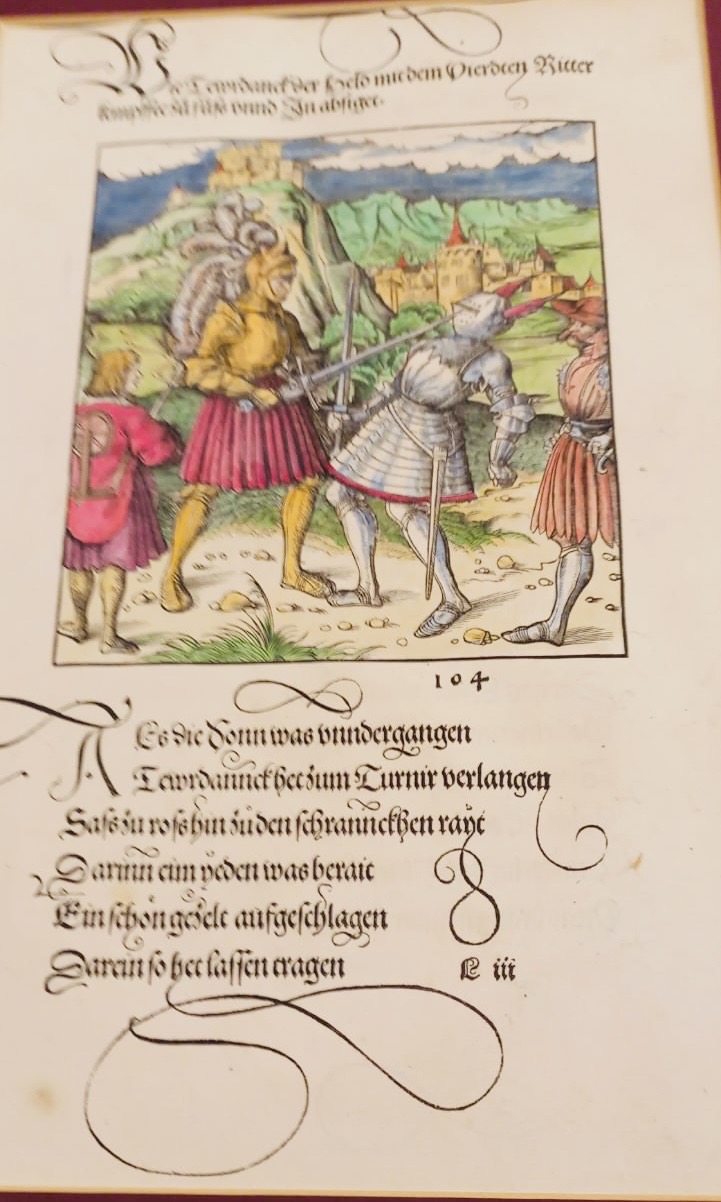 Wie Tewrdanck der Held mit dem Vierdten Ritter
kempffet zů fůss vnnd Jn absiget.
104
Als die Sonn was vnndergangen
Tewrdannck het zum Turnir verlangen
Saſs zu roſs hin zů den ſchrannckhen rayt
Darinn eim yeden was berait
Ein ſchön gezelt aufgeſchlagen
Darein ſo het laſſen tragen
iii